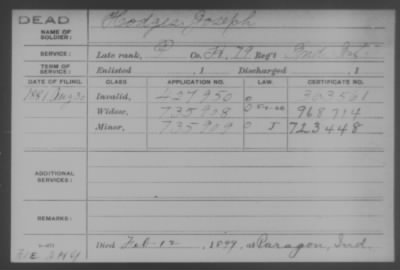 DEAD
NAME OF SOLDIER: Hodges Joseph
SERVICE: Late rank, P Co. F, 79 Reg't Ind. Inf.
TERM OF SERVICE: Enlisted , 1 Discharged , 1
DATE OF FILING. CLASS. APPLICATION NO. LAW. CERTIFICATE NO.
1881 Aug 30 Invalid, 427950
Widow, 735908 968714
Minor, 735909 723448
ADDITIONAL SERVICES:
REMARKS:
Died Feb 12, 1899, at Paragon, Ind.